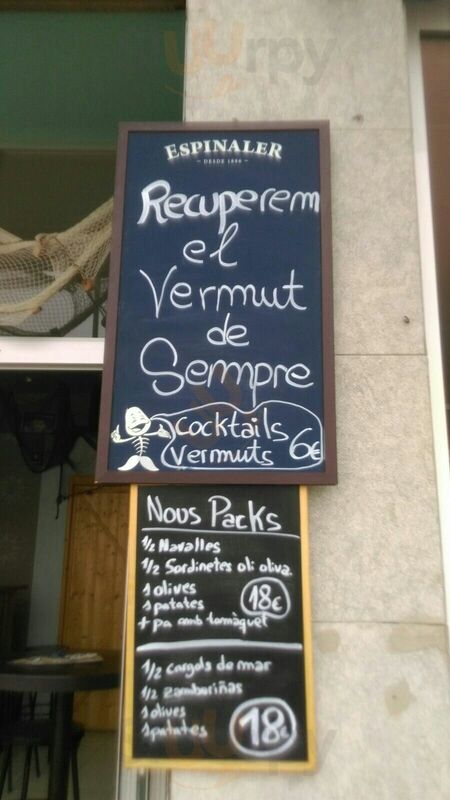 ESPINALER
DESDE 1896
Recuperem
el
Vermut
de
Sempre
Cocktails
Vermuts 6€
Nous Packs
1/2 Navalles
1/2 Sardinetes oli oliva
1 olives
1 patates
+ pa amb tomàquet
18€
1/2 cargols de mar
1/2 zamburiñas
1 olives
1 patates
18€